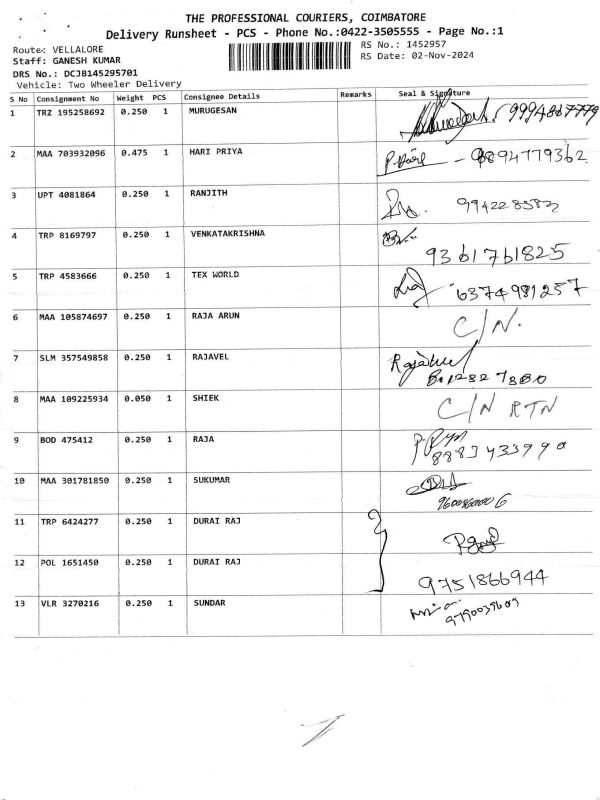 THE PROFESSIONAL COURIERS, COIMBATORE
Delivery Runsheet - PCS - Phone No.:0422-3505555 - Page No.:1
Route: VELLALORE
RS No.: 1452957
Staff: GANESH KUMAR
RS Date: 02-Nov-2024
DRS No.: DCJB145295701
Vehicle: Two Wheeler Delivery
S No Consignment No Weight PCS Consignee Details Remarks Seal & Signature
1 TRZ 195258692 0.250 1 MURUGESAN
2 MAA 703932096 0.475 1 HARI PRIYA 9894779362
3 UPT 4081864 0.250 1 RANJITH
4 TRP 8169797 0.250 1 VENKATAKRISHNA
9361761825
5 TRP 4583666 0.250 1 TEX WORLD 6374981257
6 MAA 105874697 0.250 1 RAJA ARUN C/N.
7 SLM 357549858 0.250 1 RAJAVEL Rajavel
8 MAA 109225934 0.050 1 SHIEK C/N RTN
9 BOD 475412 0.250 1 RAJA
8883433990
10 MAA 301781850 0.250 1 SUKUMAR
11 TRP 6424277 0.250 1 DURAI RAJ
12 POL 1651450 0.250 1 DURAI RAJ
9751866944
13 VLR 3270216 0.250 1 SUNDAR